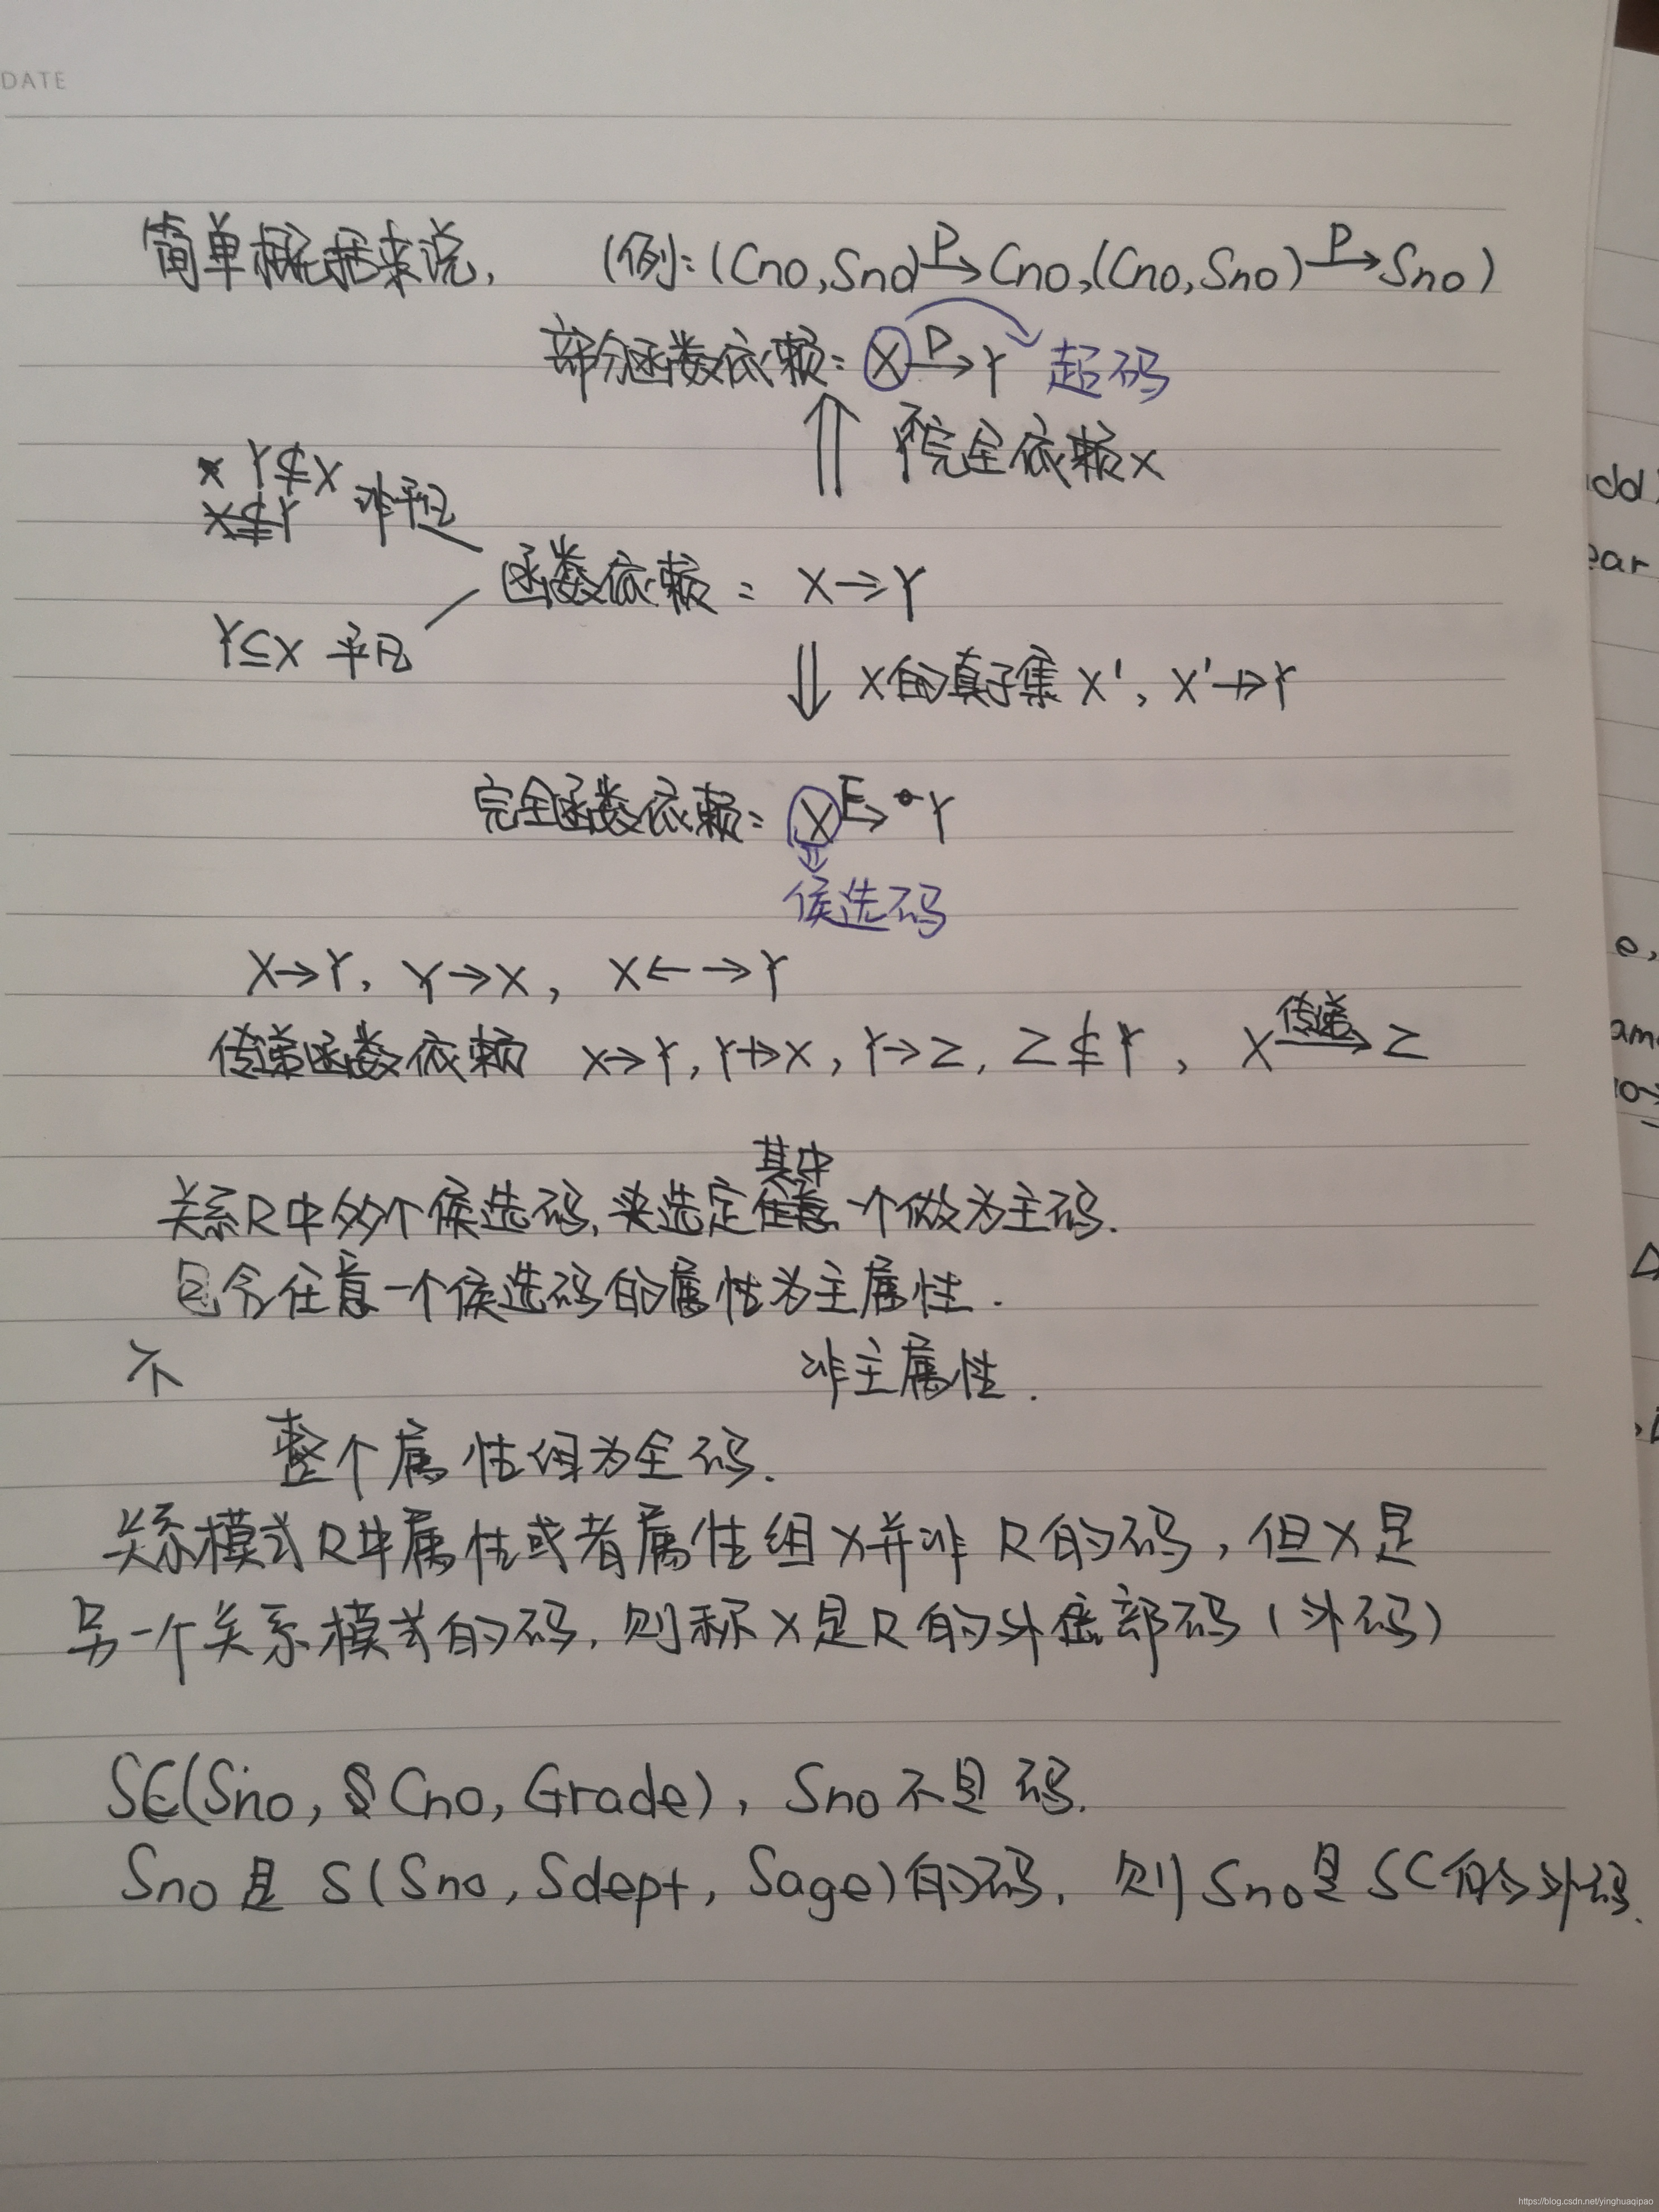 DATE
简单概括来说, (例:(Cno,Sno)P→Cno,(Cno,Sno)P→Sno)
部分函数依赖: X P→Y 超码
⇑ Y不完全依赖X
Y⊈X
X⊈Y 非平凡
函数依赖: X→Y
Y⊆X 平凡
⇓ X的真子集X', X'↛Y
完全函数依赖: X F→Y
⇓
候选码
X→Y, Y→X, X←→Y
传递函数依赖 X→Y, Y↛X, Y→Z, Z⊈Y, X传递→Z
其中
关系R中多个候选码,选定任意一个做为主码.
包含任意一个候选码的属性为主属性.
不 非主属性.
整个属性组为全码.
关系模式R中属性或者属性组X并非R的码,但X是
另一个关系模式的码,则称X是R的外部码(外码)
SC(Sno, Cno, Grade), Sno不是码.
Sno是S(Sno, Sdept, Sage)的码, 则Sno是SC的外码.
add
ear
e,
am
no→
https://blog.csdn.net/yinghuaqipao